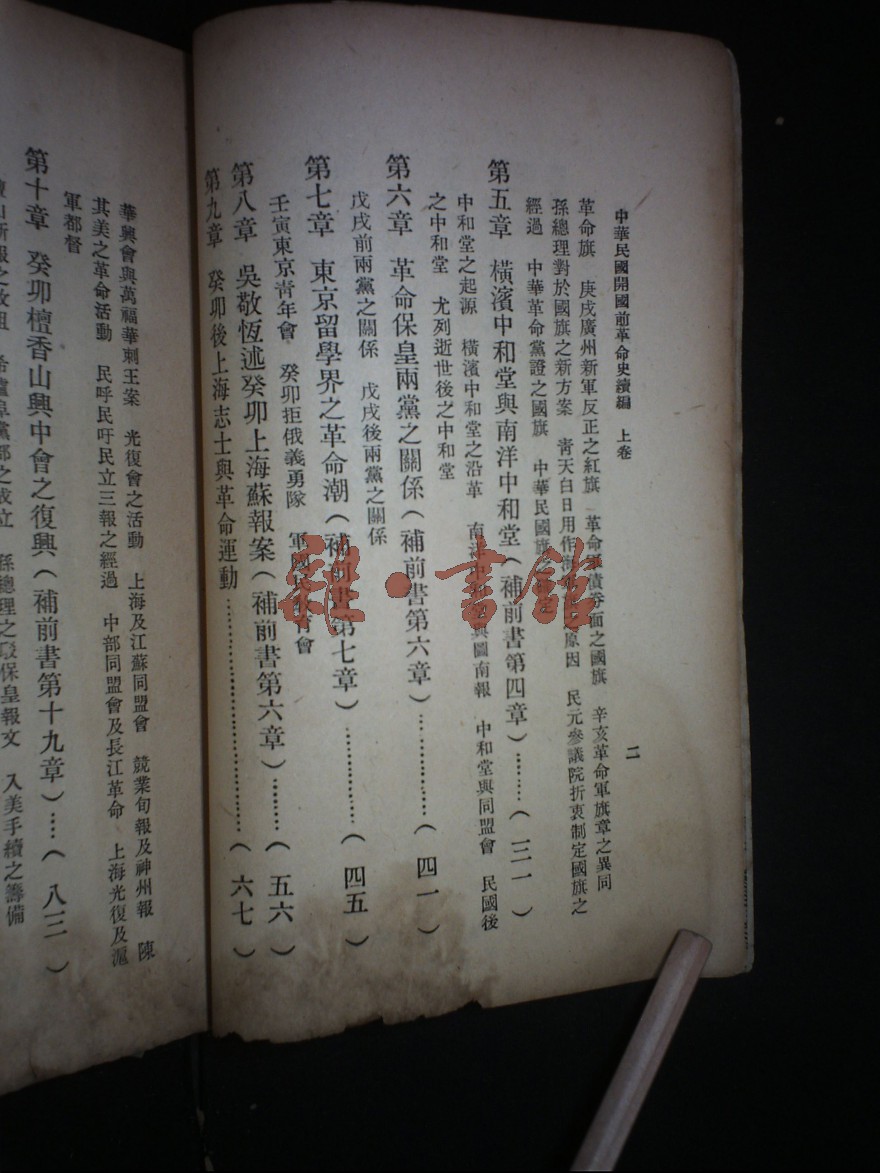 中華民國開國前革命史續編　上卷　二
革命旗　庚戌廣州新軍反正之紅旗　革命軍債券面之國旗　辛亥革命軍旗章之異同
孫總理對於國旗之新方案　青天白日用作海　原因　民元參議院折衷制定國旗之
經過　中華革命黨證之國旗　中華民國旗之
第五章　橫濱中和堂與南洋中和堂（補前書第四章）………（三一）
中和堂之起源　橫濱中和堂之沿革　南洋中和堂與圖南報　中和堂與同盟會　民國後
之中和堂　尤列逝世後之中和堂
第六章　革命保皇兩黨之關係（補前書第六章）…………（四一）
戊戌前兩黨之關係　戊戌後兩黨之關係
第七章　東京留學界之革命潮（補前書第七章）…………（四五）
壬寅東京青年會　癸卯拒俄義勇隊　軍國民教育會
第八章　吳敬恆述癸卯上海蘇報案（補前書第六章）………（五六）
第九章　癸卯後上海志士與革命運動………………………（六七）
華興會與萬福華刺王案　光復會之活動　上海及江蘇同盟會　競業旬報及神州報　陳
其美之革命活動　民呼民吁民立三報之經過　中部同盟會及長江革命　上海光復及滬
軍都督
第十章　癸卯檀香山興中會之復興（補前書第十九章）……（八三）
山新報之改組　希爐埠黨部之成立　孫總理之駁保皇報文　入美手續之籌備
雜·書館